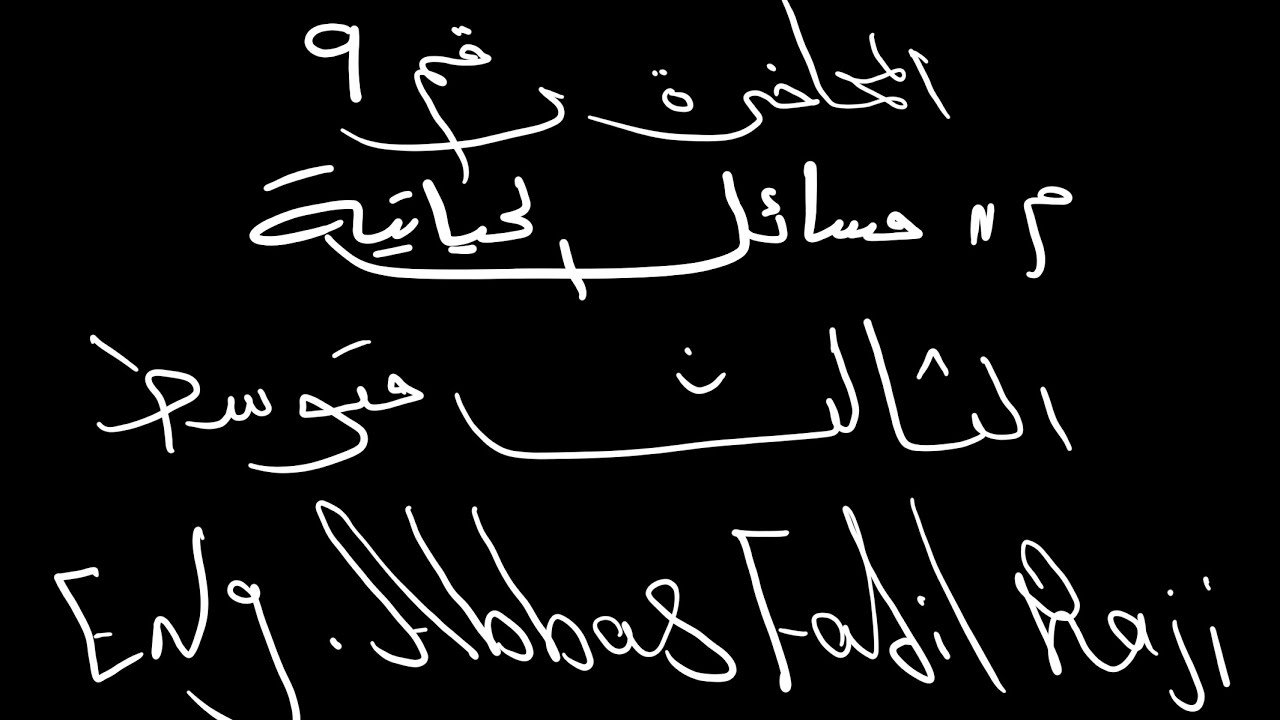 المحاضرة رقم 9
م/ مسائل الحياتية
الثالث متوسط
Eng. Abbas Fadil Raji